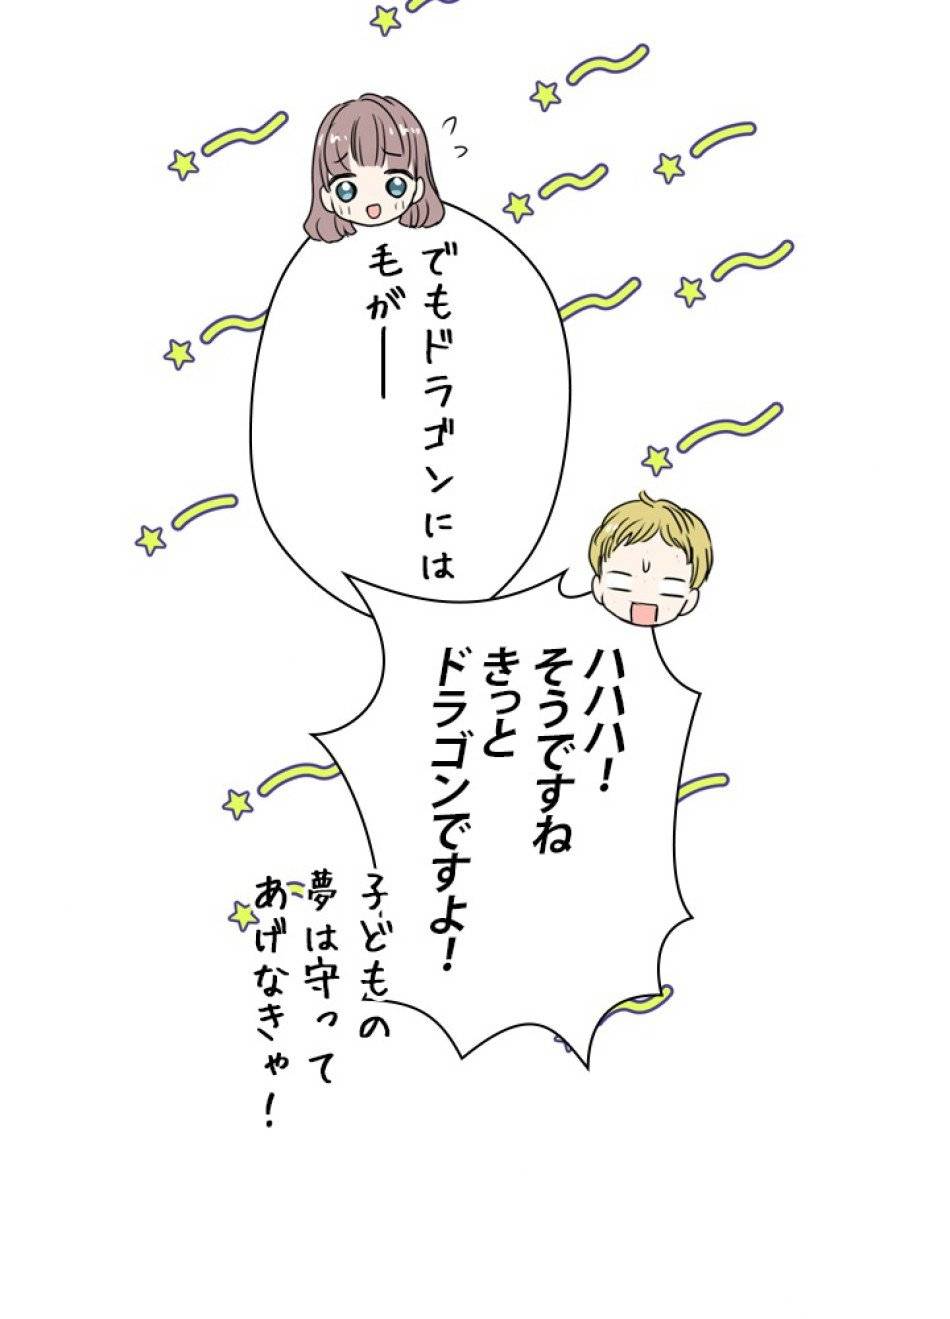 でもドラゴンには
毛がー
ハハハ！
そうですね
きっと
ドラゴンですよ！
子どもの
夢は守って
あげなきゃ！